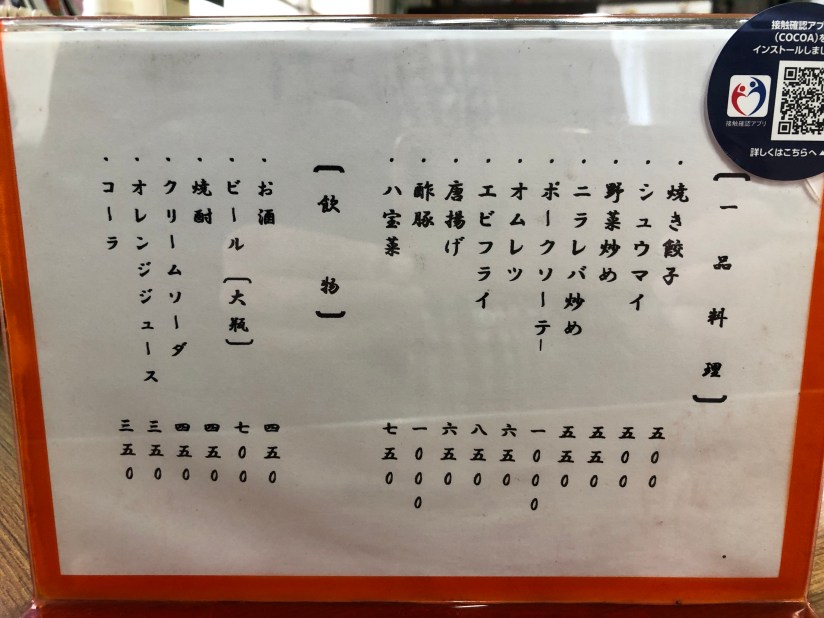 〔一品料理〕
・焼き餃子 五00
・シュウマイ 五00
・野菜炒め 五五0
・ニラレバ炒め 五五0
・ポークソーテー 一000
・オムレツ 六五0
・エビフライ 八五0
・唐揚げ 六五0
・酢豚 一000
・八宝菜 七五0
〔飲物〕
・お酒 四五0
・ビール〔大瓶〕 七00
・焼酎 四五0
・クリームソーダ 四五0
・オレンジジュース 三五0
・コーラ 三五0
接触確認アプ
(COCOA)を
インストールしま
接触確認アプリ
詳しくはこちらへ▲